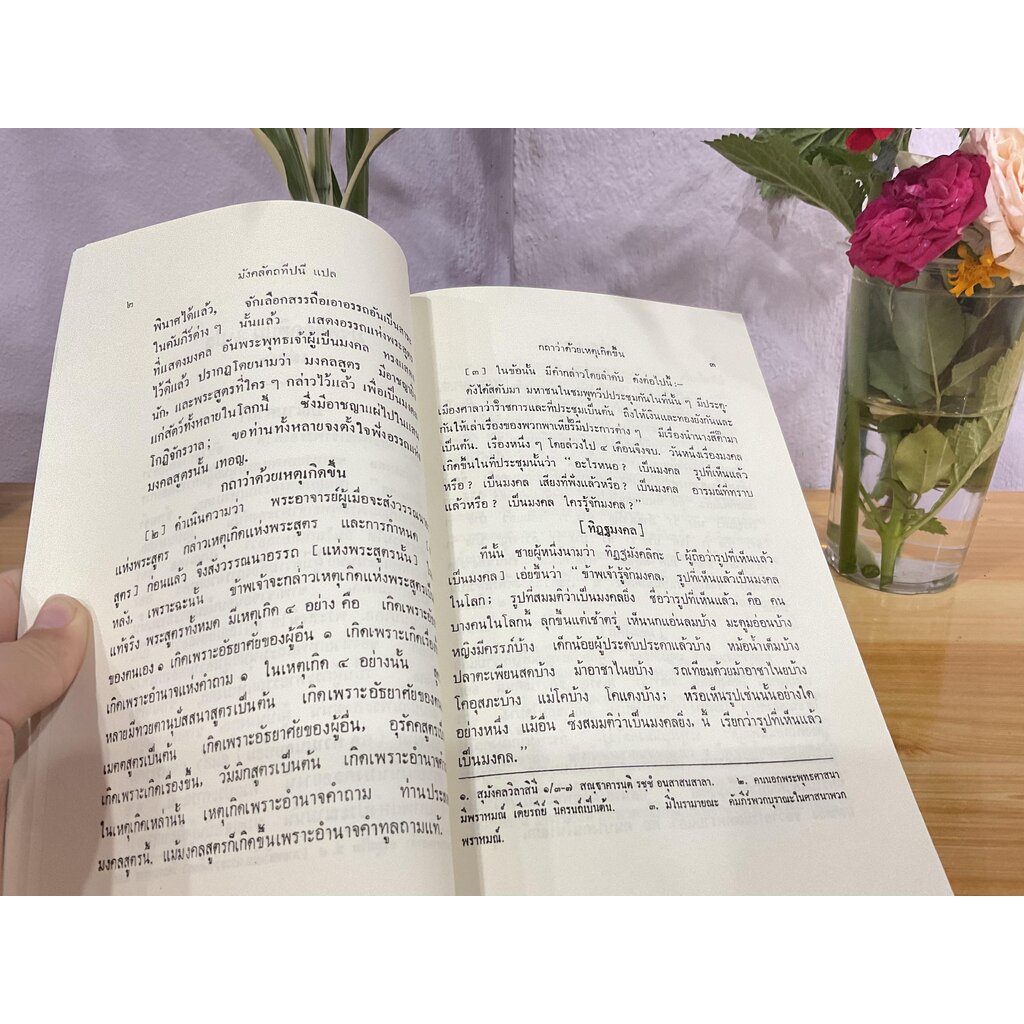 มังคลัตถทีปนี แปล
๒
พินาศได้แล้ว, จักเลือกสรรถือเอาอรรถอันเป็นสาระ
ในคัมภีร์ต่าง ๆ นั้นแล้ว แสดงอรรถแห่งพระสูตร
ที่แสดงมงคล อันพระพุทธเจ้าผู้เป็นมงคล ทรงแสดง
ไว้ดีแล้ว ปรากฏโดยนามว่า มงคลสูตร มีอาชญา
นัก, และพระสูตรที่ใคร ๆ กล่าวไว้แล้ว เพื่อเป็นมงคล
แก่สัตว์ทั้งหลายในโลกนี้ ซึ่งมีอาชญาแผ่ไปในแสน
โกฏิจักรวาล; ขอท่านทั้งหลายจงตั้งใจฟังอรรถแห่ง
มงคลสูตรนั้น เทอญ.
กถาว่าด้วยเหตุเกิดขึ้น
[๒] ดำเนินความว่า พระอาจารย์ผู้เมื่อจะสังวรรณนา
แห่งพระสูตร กล่าวเหตุเกิดแห่งพระสูตร และการกำหนด
สูตร] ก่อนแล้ว จึงสังวรรณนาอรรถ [แห่งพระสูตรนั้น]
หลัง, เพราะฉะนั้น ข้าพเจ้าจะกล่าวเหตุเกิดแห่งพระสูตร
แท้จริง พระสูตรทั้งหมด มีเหตุเกิด ๔ อย่าง คือ เกิดเพราะ
ของตนเอง ๑ เกิดเพราะอัธยาศัยของผู้อื่น ๑ เกิดเพราะเกิดเรื่อง
เกิดเพราะอำนาจแห่งคำถาม ๑ ในเหตุเกิด ๔ อย่างนั้น
หลายมีทวยตานุปัสสนาสูตรเป็นต้น เกิดเพราะอัธยาศัย
เมตตสูตรเป็นต้น เกิดเพราะอัธยาศัยของผู้อื่น, อุรัคคสูตร
เกิดเพราะเกิดเรื่องขึ้น, วัมมิกสูตรเป็นต้น เกิดเพราะอำนาจคำ
ในเหตุเกิดเหล่านั้น เหตุเกิดเพราะอำนาจคำถาม ท่านประ
มงคลสูตรนี้. แม้มงคลสูตรก็เกิดขึ้นเพราะอำนาจคำทูลถามแท้.
กถาว่าด้วยเหตุเกิดขึ้น
๓
[๓] ในข้อนั้น มีคำกล่าวโดยลำดับ ดังต่อไปนี้:–
ดังได้สดับมา มหาชนในชมพูทวีปประชุมกันในที่นั้น ๆ มีประตู
เมืองศาลาว่าราชการและที่ประชุมเป็นต้น ถึงให้เงินและทองยังกันและ
กันให้เล่าเรื่องของพวกพาเหียรมีประการต่าง ๆ มีเรื่องนำนางสีดามา
เป็นต้น. เรื่องหนึ่ง ๆ โดยล่วงไป ๔ เดือนจึงจบ. วันหนึ่งเรื่องมงคล
เกิดขึ้นในที่ประชุมนั้นว่า “อะไรหนอ? เป็นมงคล รูปที่เห็นแล้ว
หรือ? เป็นมงคล เสียงที่ฟังแล้วหรือ? เป็นมงคล อารมณ์ที่ทราบ
แล้วหรือ? เป็นมงคล ใครรู้จักมงคล?”
[ทิฏฐมงคล]
ทีนั้น ชายผู้หนึ่งนามว่า ทิฏฐมังคลิกะ [ผู้ถือว่ารูปที่เห็นแล้ว
เป็นมงคล] เอ่ยขึ้นว่า “ข้าพเจ้ารู้จักมงคล, รูปที่เห็นแล้วเป็นมงคล
ในโลก; รูปที่สมมติว่าเป็นมงคลยิ่ง ชื่อว่ารูปที่เห็นแล้ว. คือ คน
บางคนในโลกนี้ ลุกขึ้นแต่เช้าตรู่ เห็นนกแอ่นลมบ้าง มะตูมอ่อนบ้าง
หญิงมีครรภ์บ้าง เด็กน้อยผู้ประดับประดาแล้วบ้าง หม้อน้ำเต็มบ้าง
ปลาตะเพียนสดบ้าง ม้าอาชาไนยบ้าง รถเทียมด้วยม้าอาชาไนยบ้าง
โคอุสภะบ้าง แม่โคบ้าง โคแดงบ้าง; หรือเห็นรูปเช่นนั้นอย่างใด
อย่างหนึ่ง แม้อื่น ซึ่งสมมติว่าเป็นมงคลยิ่ง, นี้ เรียกว่ารูปที่เห็นแล้ว
เป็นมงคล.”
๑. สุมังคลวิลาสินี ๑/๓-๗ สณฺฐาคารนฺติ รชฺชํ อนุสาสนสาลา. ๒. คนนอกพระพุทธศาสนา
มีพราหมณ์ เดียรถีย์ นิครนถ์เป็นต้น. ๓. มีในรามายณะ คัมภีร์พวกบุราณะในศาสนาพวก
พราหมณ์.